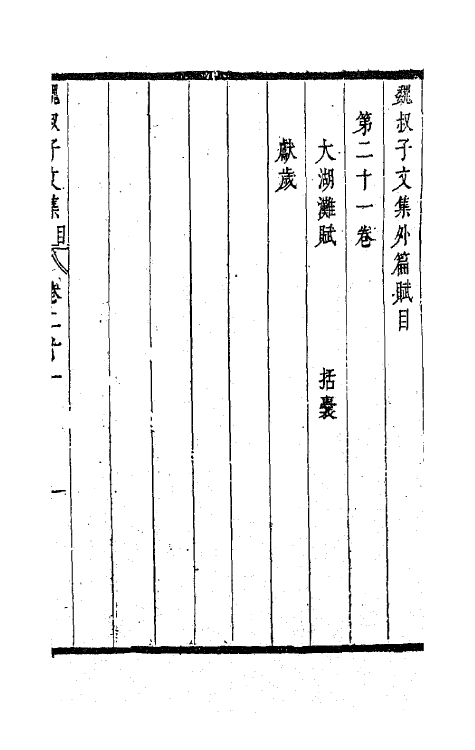 魏叔子文集外篇賦目
第二十一卷
大湖灘賦　括囊
獻歲
魏叔子文集 目 卷二十一 一